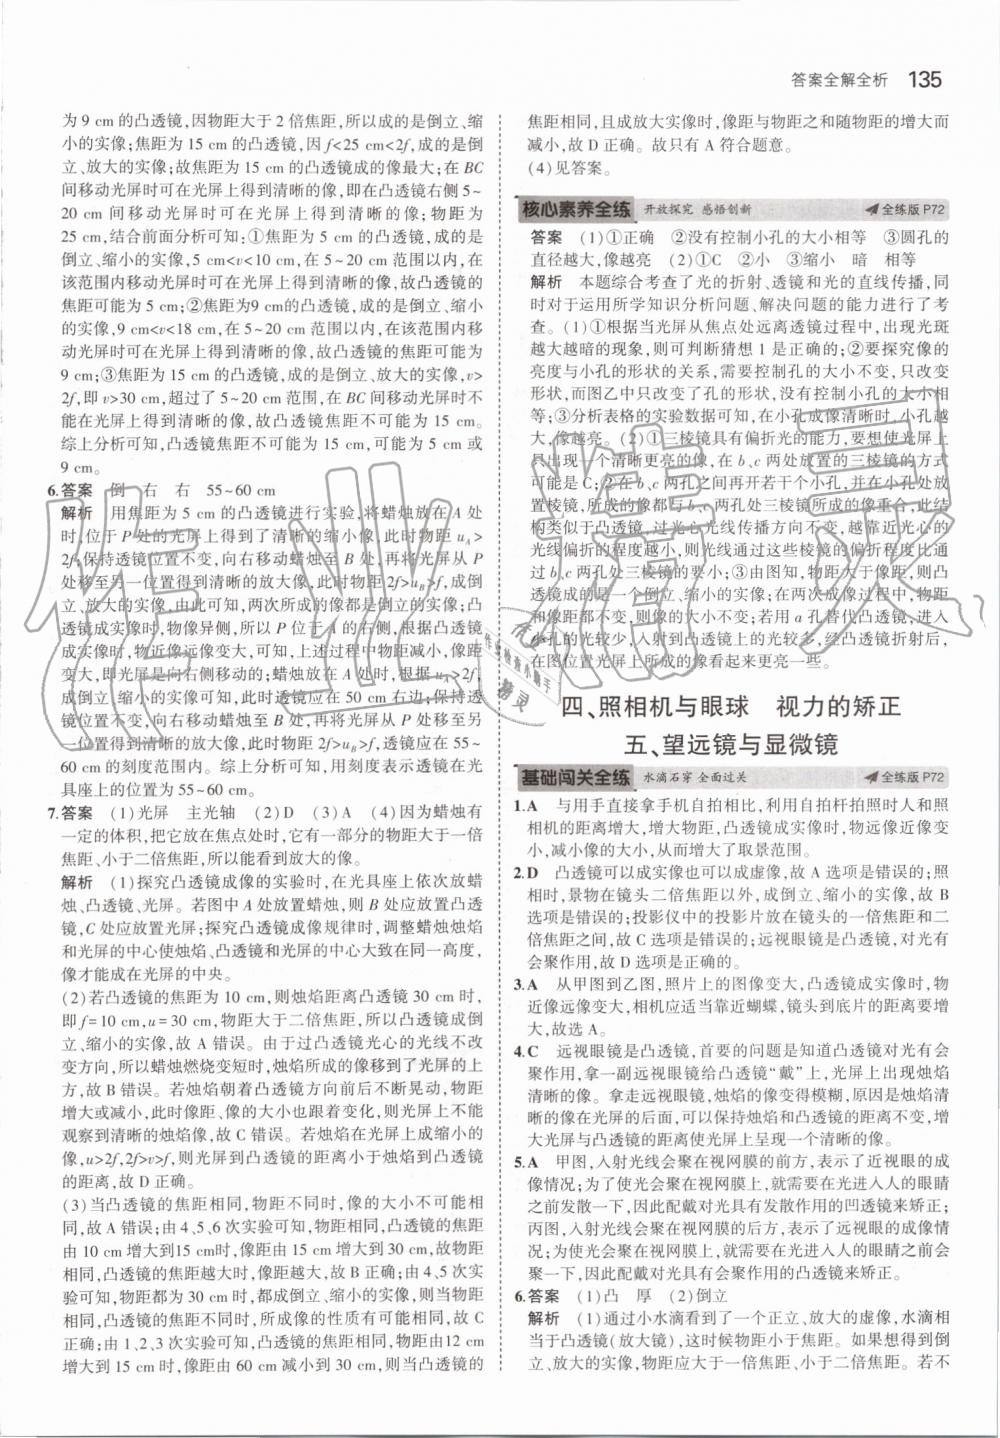 答案全解全析 135
为 9 cm 的凸透镜,因物距大于 2 倍焦距,所以成的是倒立、缩
小的实像;焦距为 15 cm 的凸透镜,因 f<25 cm<2f,成的是倒
立、放大的实像;故焦距为 15 cm 的凸透镜成的像最大;在 BC
间移动光屏时可在光屏上得到清晰的像,即在凸透镜右侧 5~
20 cm 间移动光屏时可在光屏上得到清晰的像;物距为
25 cm,结合前面分析可知:①焦距为 5 cm 的凸透镜,成的是倒
立、缩小的实像,5 cm<v<10 cm,在 5~20 cm 范围以内,在
该范围内移动光屏时可在光屏上得到清晰的像,故凸透镜的
焦距可能为 5 cm;②焦距为9 cm的凸透镜,成的是倒立、缩小
的实像,9 cm<v<18 cm,在 5~20 cm 范围以内,在该范围内移
动光屏时可在光屏上得到清晰的像,故凸透镜的焦距可能为
9 cm;③焦距为 15 cm 的凸透镜,成的是倒立、放大的实像,v>
2f,即 v>30 cm,超过了 5~20 cm 范围,在 BC 间移动光屏时不
能在光屏上得到清晰的像,故凸透镜的焦距不可能为 15 cm。
综上分析可知,凸透镜焦距不可能为 15 cm,可能为 5 cm 或
9 cm。
6.答案 倒 右 右 55~60 cm
解析 用焦距为 5 cm 的凸透镜进行实验,将蜡烛放在 A 处
时,位于 P 处的光屏上得到了清晰的缩小像,此时物距 uA>
2f,保持透镜位置不变,向右移动蜡烛至 B 处,再将光屏从 P
处移至另一位置得到清晰的放大像,此时物距 2f>uB>f,成倒
立、放大的实像;由此可知,两次所成的像都是倒立的实像;凸
透镜成实像时,物像异侧,所以 P 位于 A 的右侧,根据凸透镜
成实像时,物近像远像变大,可知,上述过程中物距减小,像距
变大,即光屏是向右侧移动的;蜡烛放在 A 处时,根据 uA>2f,
成倒立、缩小的实像可知,此时透镜应在 50 cm 右边;保持透
镜位置不变,向右移动蜡烛至 B 处,再将光屏从 P 处移至另
一位置得到清晰的放大像,此时物距 2f>uB>f,透镜应在 55~
60 cm 的刻度范围内。综上分析可知,用刻度表示透镜所处
的位置为 55~60 cm。
7.答案 (1)光屏 主光轴 (2)D (3)A (4)因为蜡烛有
一定的体积,把它放在焦点处时,它有一部分的物距大于一倍
焦距、小于二倍焦距,所以能看到放大的像。
解析 (1)探究凸透镜成像的实验时,在光具座上依次放蜡
烛、凸透镜、光屏。若图中 A 处放置蜡烛,则 B 处应放置凸透
镜,C 处应放置光屏;探究凸透镜成像规律时,调整蜡烛烛焰
和光屏的中心使烛焰、凸透镜和光屏的中心大致在同一高度,
像才能成在光屏的中央。
(2)若凸透镜的焦距为 10 cm,则烛焰距离凸透镜 30 cm 时,
即 f=10 cm,u=30 cm,物距大于二倍焦距,所以凸透镜成倒
立、缩小的实像,故 A 错误。由于过凸透镜光心的光线不改
变方向,所以蜡烛燃烧变短时,烛焰的像移到了光屏的上
方,故 B 错误。若烛焰朝着凸透镜方向前后不断晃动,物距
增大或减小,此时像距、像的大小也跟着变化,则光屏上不能
观察到清晰的烛焰像,故 C 错误。若烛焰在光屏上成缩小的
像,u>2f,2f>v>f,则光屏到凸透镜的距离小于烛焰到凸透镜
的距离,故 D 正确。
(3)当凸透镜的焦距相同,物距不同时,像的大小不可能相
同,故 A 错误;由 4、5、6 次实验可知,物距相同,凸透镜的焦距
由 10 cm 增大到15 cm时,像距由 15 cm 增大到 30 cm,故物距
相同,凸透镜的焦距越大时,像距越大,故 B 正确;由 4、5 次实
验可知,物距为 30 cm 时,都成倒立、缩小的实像,则当物距相
同,凸透镜的焦距不同时,所成像的性质有可能相同,故 C
正确;由 1、2、3 次实验可知,凸透镜的焦距相同,物距由12 cm
增大到 15 cm 时,像距由 60 cm 减小到 30 cm,则当凸透镜的
焦距相同,且成放大实像时,像距与物距之和随物距的增大而
减小,故 D 正确。故只有 A 符合题意。
(4)见答案。
核心素养全练 开放探究 感悟创新 全练版 P72
答案 (1)①正确 ②没有控制小孔的大小相等 ③圆孔的
直径越大,像越亮 (2)①C ②小 ③缩小 暗 相等
解析 本题综合考查了光的折射、透镜和光的直线传播,同
时对于运用所学知识分析问题、解决问题的能力进行了考
查。(1)①根据当光屏从焦点处远离透镜过程中,出现光斑
越大越暗的现象,则可判断猜想 1 是正确的;②要探究像的
亮度与小孔的形状的关系,需要控制孔的大小不变,只改变
形状,而图乙中只改变了孔的形状,没有控制小孔的大小相
等;③分析表格的实验数据可知,在小孔成像清晰时,小孔越
大,像越亮。(2)①三棱镜具有偏折光的能力,要想使光屏上
只出现一个清晰更亮的像,在 b、c 两处放置的三棱镜的方式
可能是 C;②在 b、c 两孔之间再开若干个小孔,并在小孔处放
置棱镜,所成的像都与 b、c 两孔处三棱镜成的像重合,此结
构类似于凸透镜,过光心光线传播方向不变,越靠近光心的
光线偏折的程度越小,则光线通过这些棱镜的偏折程度都
比 b、c 两孔处三棱镜的要小;③由图知,物距大于像距,则凸
透镜成的是一个倒立、缩小的实像;在两次成像过程中,物距
和像距都不变,则像的大小不变;若用 a 孔替代凸透镜,进入
小孔的光较少,入射到凸透镜上的光较多,经凸透镜折射后,
在图位置光屏上所成的像看起来更亮一些。
四、照相机与眼球 视力的矫正
五、望远镜与显微镜
基础闯关全练 水滴石穿 全面过关 全练版 P72
1.A 与用手直接拿手机自拍相比,利用自拍杆拍照时人和照
相机的距离增大,增大物距,凸透镜成实像时,物远像近像变
小,减小像的大小,从而增大了取景范围。
2.D 凸透镜可以成实像也可以成虚像,故 A 选项是错误的;照
相时,景物在镜头二倍焦距以外,成倒立、缩小的实像,故 B
选项是错误的;投影仪中的投影片放在镜头的一倍焦距和二
倍焦距之间,故 C 选项是错误的;远视眼镜是凸透镜,对光有
会聚作用,故 D 选项是正确的。
3.A 从甲图到乙图,照片上的图像变大,凸透镜成实像时,物
近像远像变大,相机应适当靠近蝴蝶,镜头到底片的距离要增
大,故选 A。
4.C 远视眼镜是凸透镜,首要的问题是知道凸透镜对光有会
聚作用,拿一副远视眼镜给凸透镜“戴”上,光屏上会出现烛焰
清晰的像。拿走远视眼镜,烛焰的像变得模糊,原因是烛焰清
晰的像在光屏的后面,可以保持烛焰和凸透镜的距离不变,增
大光屏与凸透镜的距离使光屏上呈现一个清晰的像。
5.A 甲图,入射光线会聚在视网膜的前方,表示了近视眼的成
像情况;为了使光会聚在视网膜上,就要使光在进入人的眼睛
之前发散一下,因此配戴对光具有发散作用的凹透镜来矫正;
丙图,入射光线会聚在视网膜的后方,表示了远视眼的成像情
况;为使光会聚在视网膜上,就要使光进入人的眼睛之前会
聚一下,因此配戴对光具有会聚作用的凸透镜来矫正。
6.答案 (1)凸 厚 (2)倒立
解析 (1)通过小水滴看到了一个正立、放大的虚像,水滴相
当于凸透镜(放大镜),这时候物距小于焦距。如果想得到倒
立、放大的实像,物距应大于一倍焦距、小于二倍焦距。若不